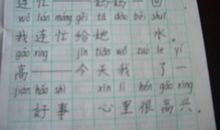 连忙 妈妈
wǒ lián máng gěi tā dào bēi shuǐ
我连忙给她 水。
gāo xìng jīn tiān wǒ zuò le yí
高 今天我 了一
jiàn hǎo shì xīn lǐ hěn gāo xìng
好事 心里很高兴。